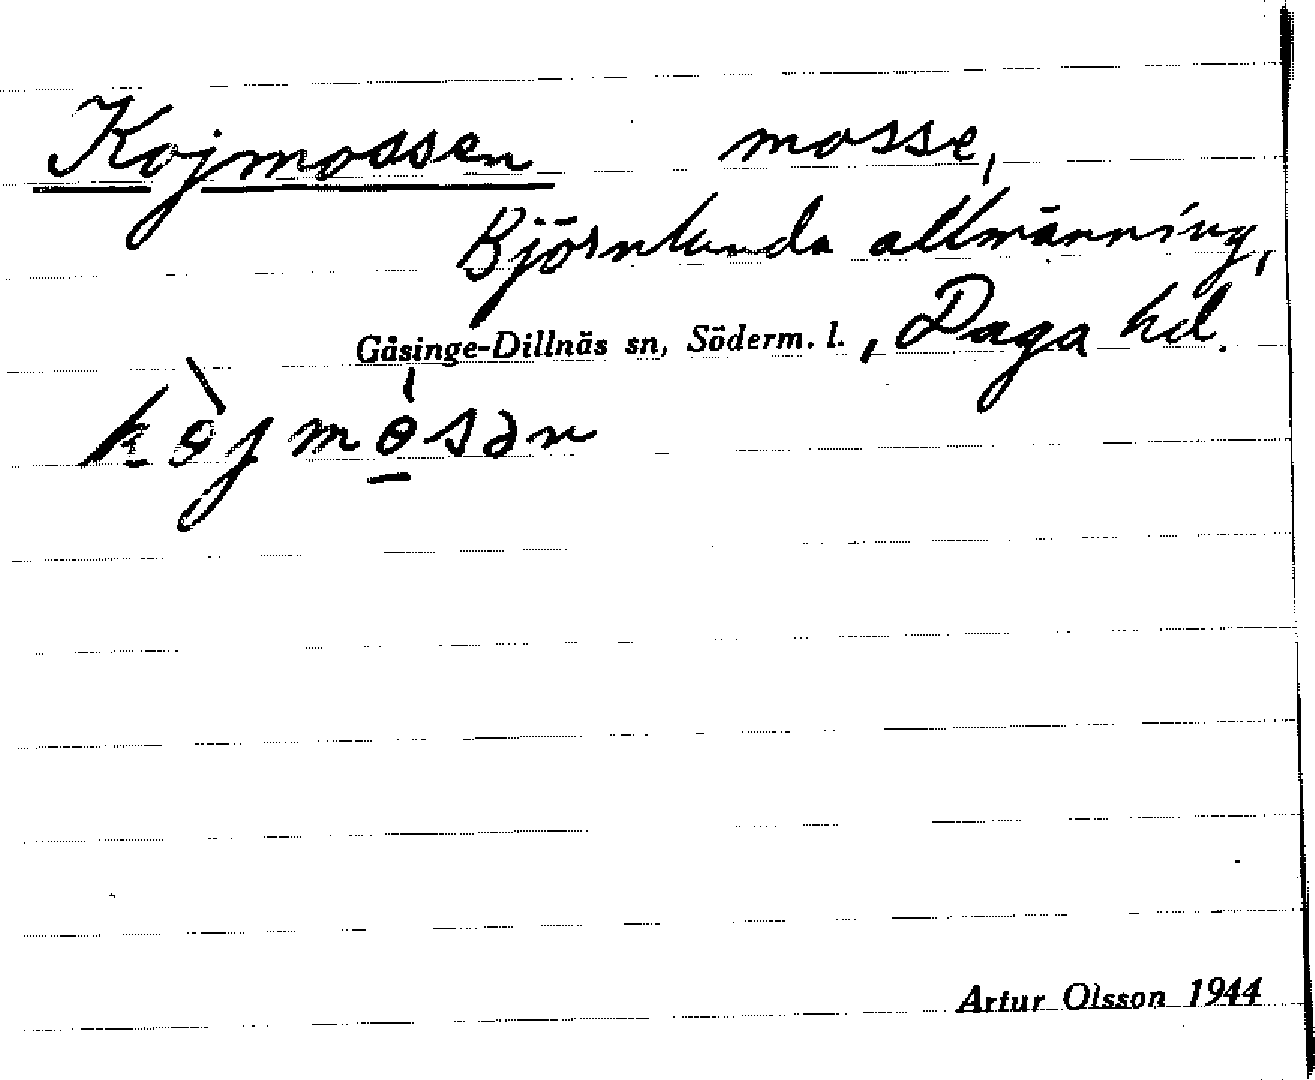 Kojmossen mosse,
Björnlunda allmänning,
Gåsinge-Dillnäs sn, Söderm. l., Daga hd.
kòjmósən
Artur Olsson 1944